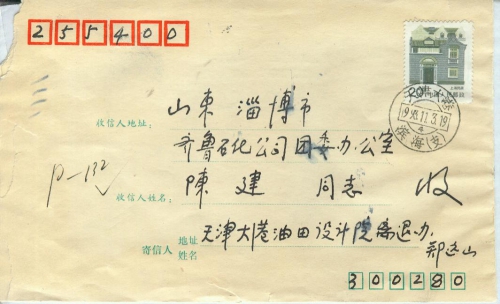 255400
山东 淄博市
收信人地址:
齐鲁石化公司团委办公室
P-132
陳 建 同志 收
收信人姓名:
天津大港油田设计院离退办
寄信人 地址 姓名
郑达山
300280